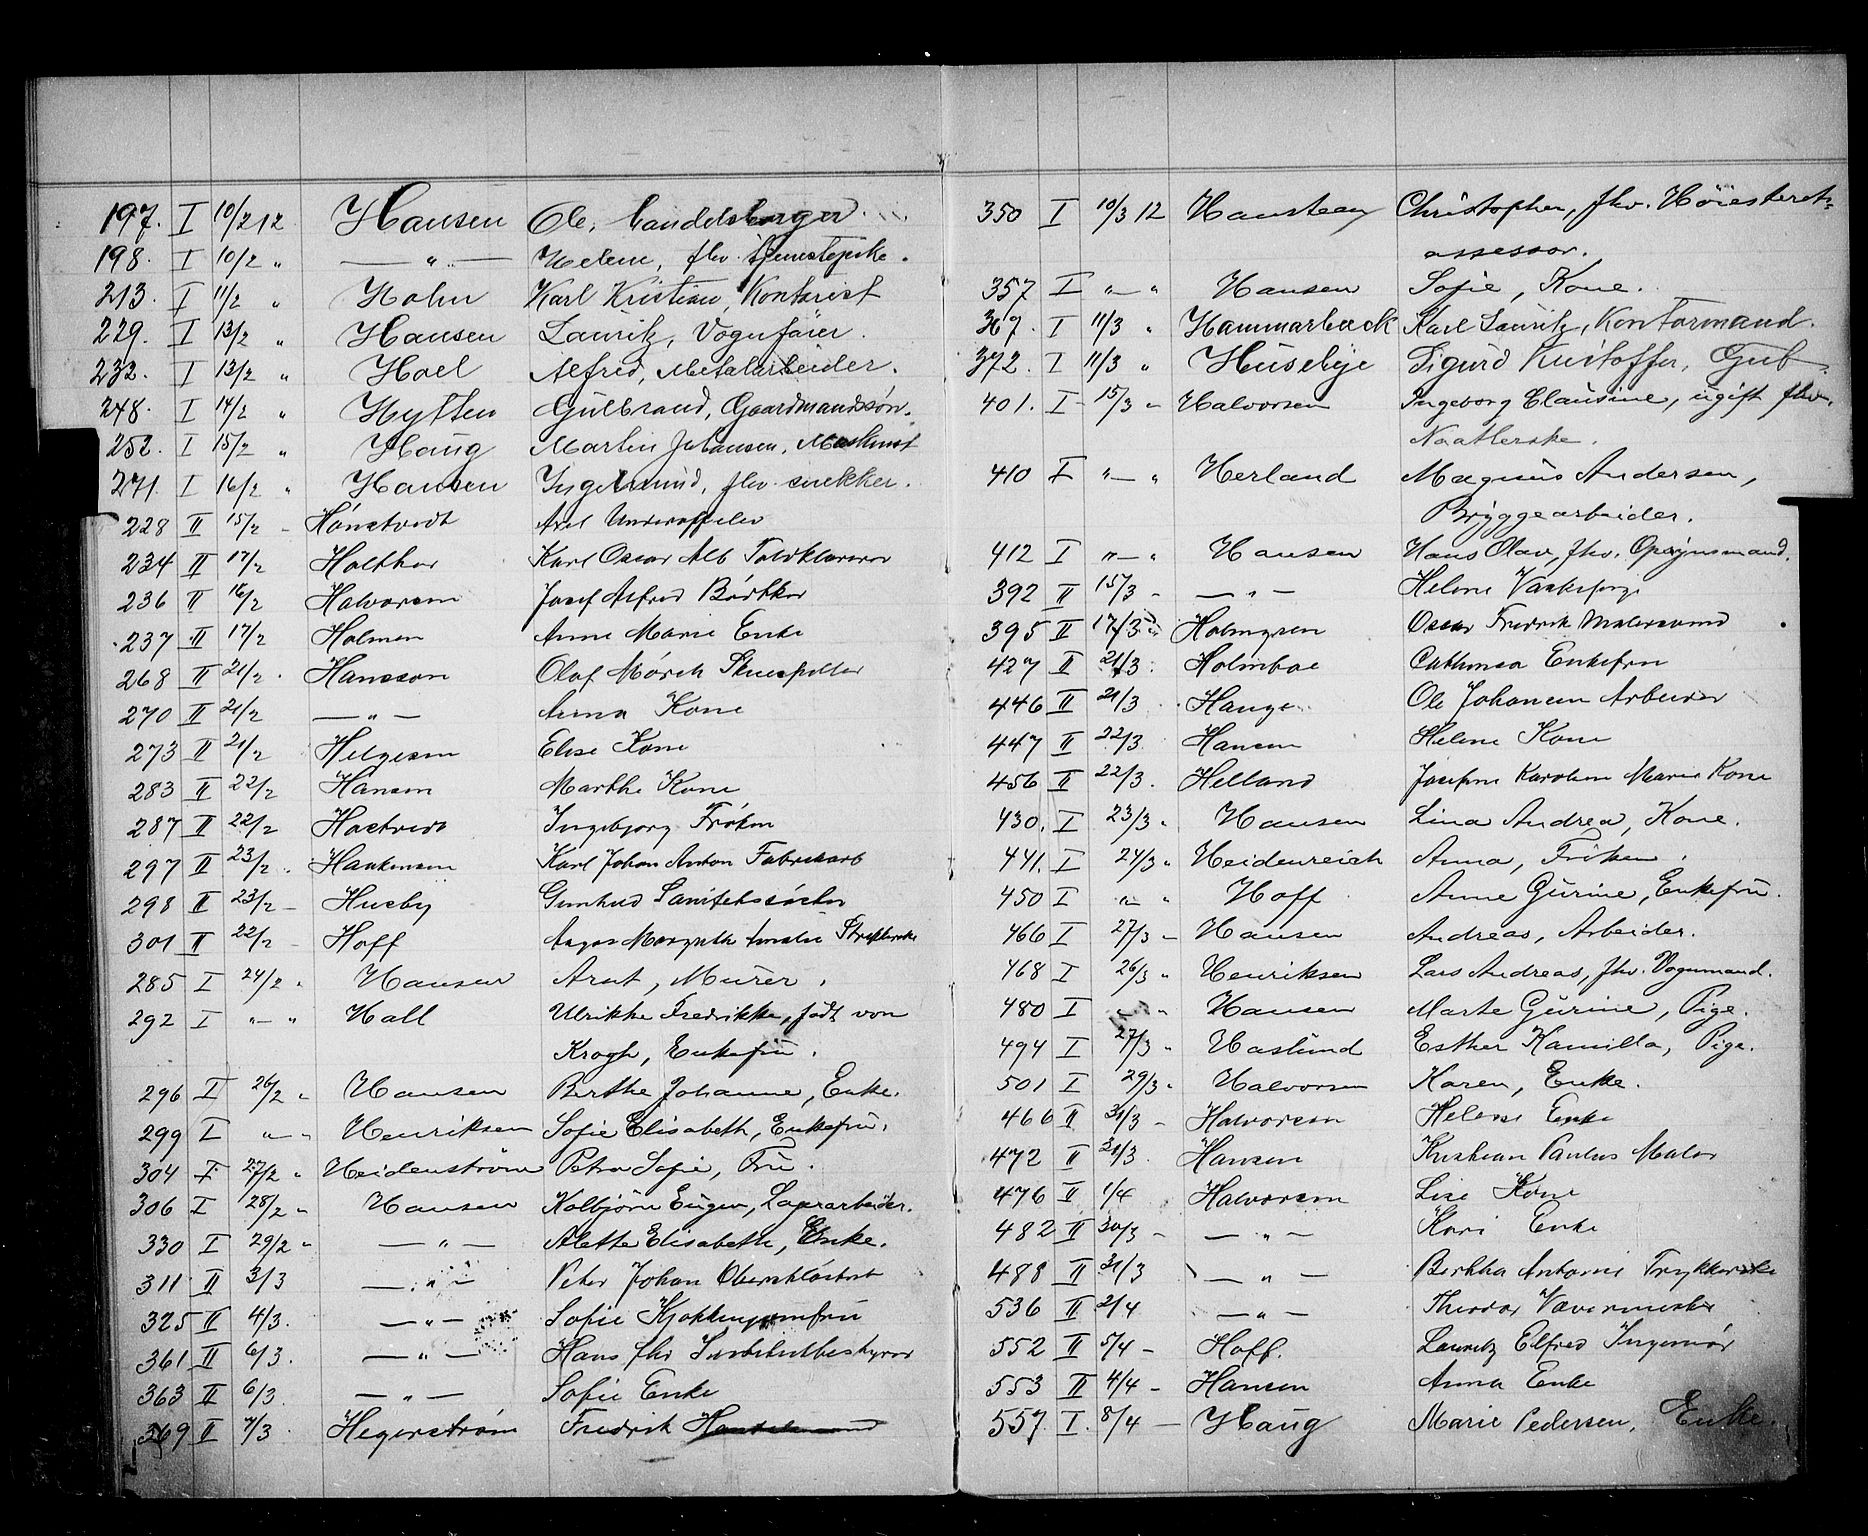 197. I 10/2 12. Hansen Ole, Handelsborger.
198. I 10/2 " — " — Helene, fhv. Tjenestepike.
213. I 11/2 " Holm Karl Kristian, Kontorist
229. I 13/2 " Hansen Lauritz, Vognfører.
232. I 13/2 " Hoel Alfred, Metalarbeider.
248. I 14/2 " Hytten Gulbrand, Gaardmandssøn.
252. I 15/2 " Haug Martin Johansen, Maskinist
271. I 16/2 " Hansen Ingelmund, fhv. snekker.
228 II 15/2 - Axel Underofficer
234 II 17/2 Holther Karl Oscar Alb Toldkasserer
236 II 16/2 Halvorsen Josef Alfred Bødtker
237 II 17/2 Holmen Anne Marie Enke
268 II 21/2 Hansson Olaf Mørch Skuespiller
270 II 21/2 — " — Anna Kone
273 II 21/2 Helgesen Elise Kone
283 II 22/2 Hansen Marthe Kone
287 II 22/2 Hastvedt Ingebjorg Frøken
297 II 23/2 Haakensen Karl Johan Anton Fabrikarb
298 II 23/2 - Huseby Gunhild Sanitetssøster
301 II 22/2 - Hoff Margrethe Amalie
285 I 24/2 " Hansen Arnt, Murer.
292 I " — " Hall Ulrikke Fredrikke, født von
Krogh, Enkefru.
296 I 26/2 " Hansen Berthe Johanne, Enke.
299 I " — " Henriksen Sofie Elisabeth, Enkefru.
304 I 27/2 " Heidenstrøm Petra Sofie, Fru.
306 I 28/2 " Hansen Kolbjørn Eugen, Lagerarbeider.
330 I 29/2 " — " — Alette Elisabeth, Enke.
311 II 3/3 — " — Peter Johan Oberstløitnt
325 II 4/3. — " — Sofie Kjøkkenjomfru
361 II 6/3. — " — Hans fhv Institutbestyrer
363 II 6/3. — " — Sofie Enke
369 II 7/3 Hegerstrøm Fredrik Handelsmand
350 I 10/3 12 Hansteen Christopher, fhv. Høiesterets-
assessor.
357 I " — " Hansen Sofie, Kone.
367. I 11/3 " Hammarbeck Karl Lauritz, Kontormand.
372. I 11/3 " Husebye Sigurd Kristoffer, Gut
401. I 15/3 " Halvorsen Ingeborg Clausine, ugift fhv.
Naatlerske.
410 I " — " Herland Magnus Andersen,
Bryggearbeider.
412 I " — " Hansen Hans Olav, fhv. Opsynsmand.
392 II 15/3 - — " — Helene Vaskepige
395 II 17/3 Holmgren Oscar Fredrik Malersvend
427 II 21/3. Holmboe Cathinca Enkefru
446 II 21/3 Hauge Ole Johansen Arbeider
447 II 22/3 Hansen Helene Kone
456 II 22/3. Helland Josefine Karoline Marie Kone
430. I 23/3 " Hansen Lina Andrea, Kone.
441. I 24/3 " Heidenreich Anna, Frøken.
450 I " — " Hoff Anne Gurine, Enkefru.
466 I 27/3 " Hansen Andreas, Arbeider.
468 I 26/3 " Henriksen Lars Andreas, fhv. Vognmand.
480 I " — " Hansen Marte Gurine, Pige.
494 I 27/3 " Haslund Esther Kamilla, Pige.
501 I 29/3 " Halvorsen Karen, Enke.
466 II 31/3 - Halvorsen Helene Enke
472 II 31/3. Hansen Kristian Paulus Maler
476 II 1/4 Halvorsen Lise Kone
482 II 30/3 - — " — Kari Enke
488 II 31/3 — " — Bertha Antonie Trykkerske
536 II 2/4 — " — Theodor Vævermester
552 II 5/4 - Hoff. Lauritz Elfred Ingeniør
553 II 4/4 - Hansen Anna Enke
557. I. 8/4 — Haug Marie Pedersen, Enke.